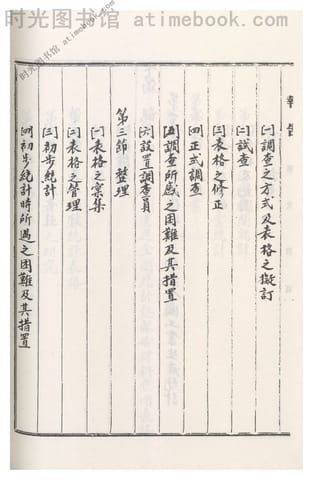 时光图书馆 atimebook.com
報告
㈠調查之方式及表格之擬訂
㈡試查
㈢表格之修正
㈣正式調查
㈤調查所感之困難及其措置
㈥設置調查員
第三節 整理
㈠表格之彙集
㈡表格之管理
㈢初步統計
㈣初步統計時所遇之困難及其措置